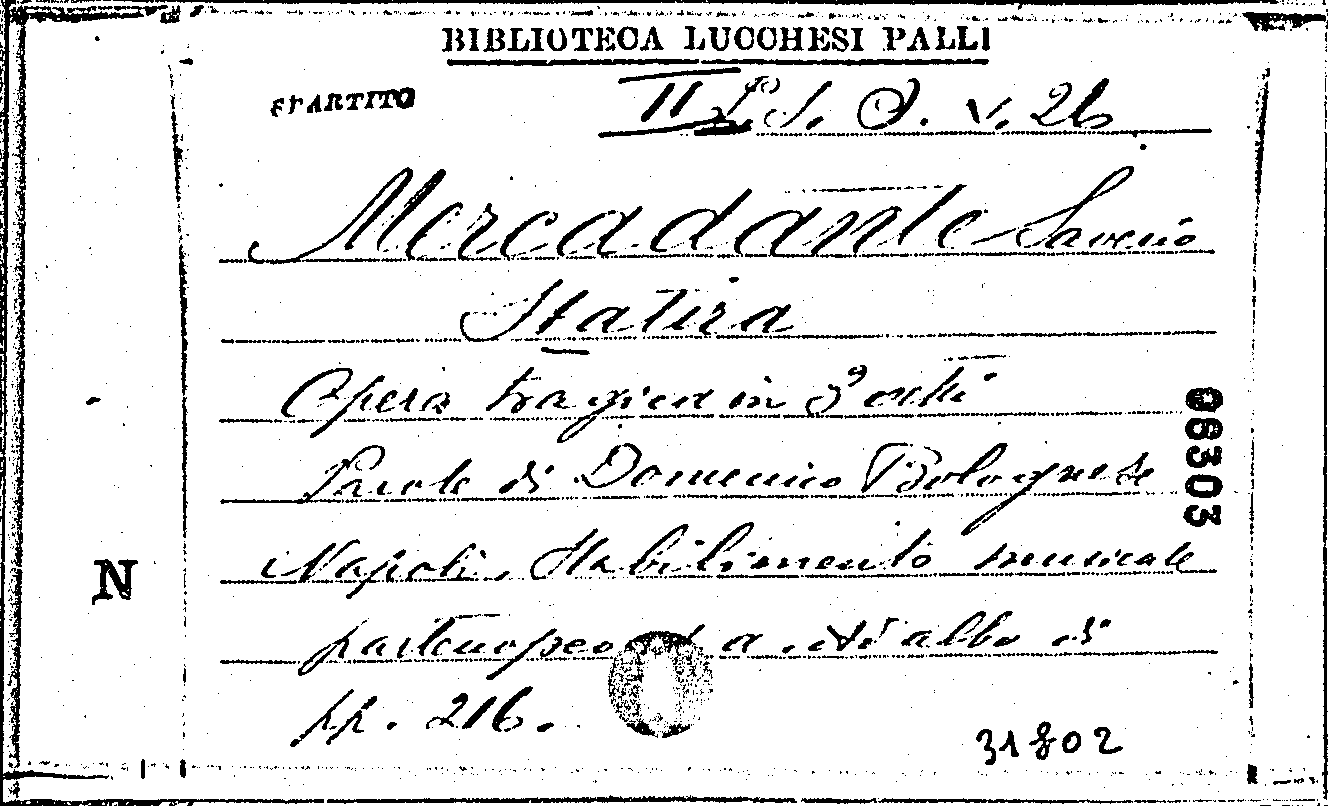 BIBLIOTECA LUCCHESI PALLI
SPARTITO
II L. S. O. V. 26
Mercadante Saverio
Statira
Opera tragica in 3 atti
Parole di Domenico Bolognese
Napoli. Stabilimento musicale
partenopeo albo di
pp. 216.
06303
N
31802